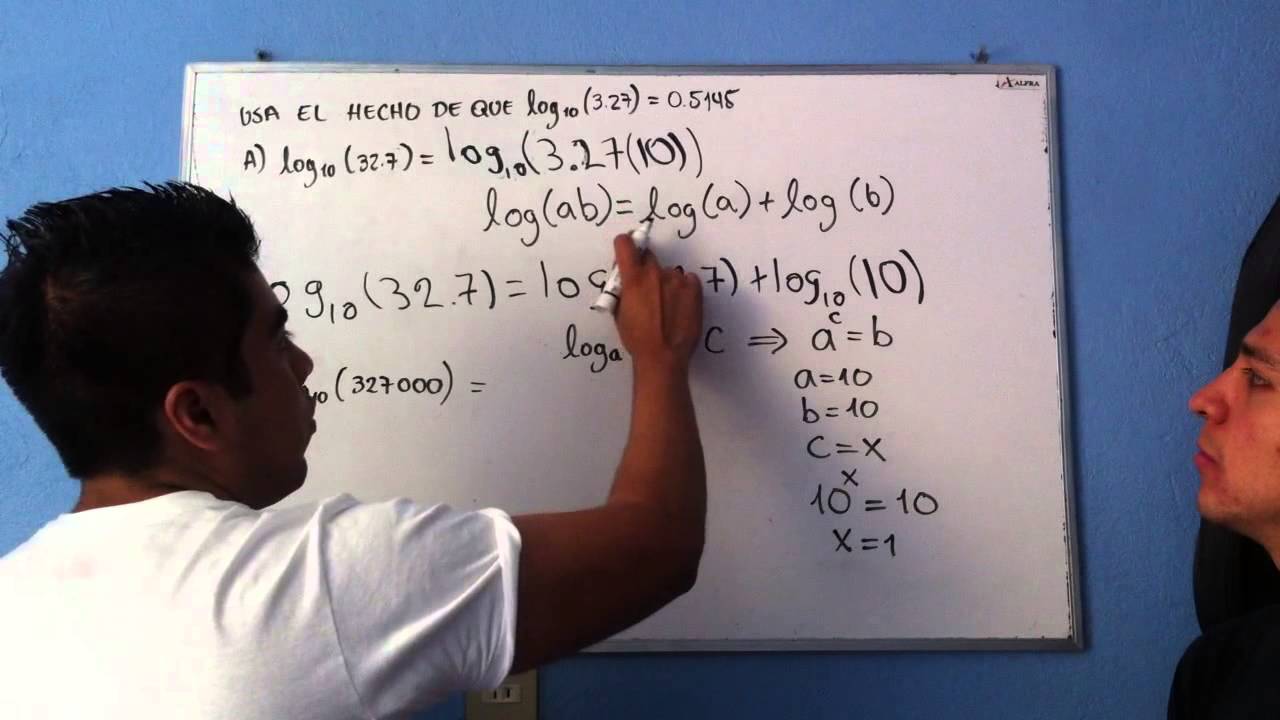 ALFRA
USA EL HECHO DE QUE log₁₀(3.27) = 0.5145
A) log₁₀(32.7) = log₁₀(3.27(10))
log(ab) = log(a) + log(b)
og₁₀(32.7) = log 7) + log₁₀(10)
logₐ C ⇒ aᶜ = b
a=10
b=10
₁₀(327000) =
C=X
10ˣ = 10
X=1